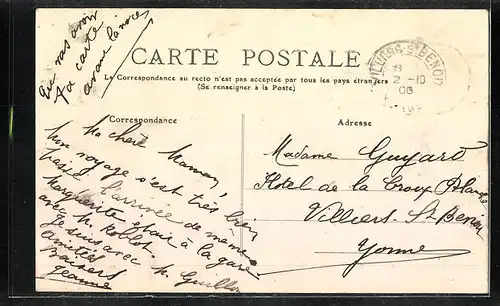 CARTE POSTALE
La Correspondance au recto n'est pas acceptée par tous les pays étrangers
(Se renseigner à la Poste)
VILLIERS-ST-BENOIT
2 -10
06
Correspondance
Ma chère Maman,
Mon voyage s'est très bien
passé. L'arrivée de même
Marguerite était à la gare
avec M.
Je suis avec M. Guillon
Amitiés
Baisers
Jeanne
ta carte
avant la noce
Adresse
Madame Guyard
Hotel de la Croix Blanche
Villiers St Benoit
Yonne